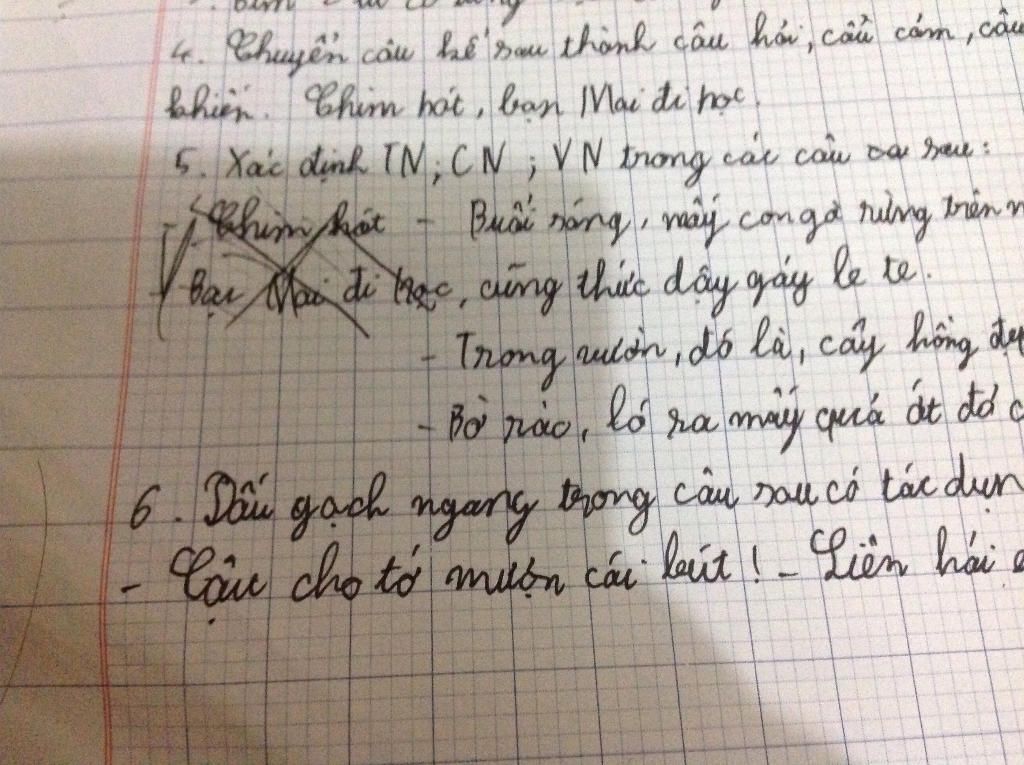 4. Chuyển câu kể sau thành câu hỏi, câu cảm, câu
khiến. Chim hót, bạn Mai đi học.
5. Xác định TN; CN; VN trong các câu sau:
Chim hót - Buổi sáng, mấy con gà rừng trên
Bạn Mai đi học, cũng thức dậy gáy le te.
- Trong vườn, đó là, cây hồng
- Bờ rào, ló ra mấy quả ớt đỏ
6. Dấu gạch ngang trong câu sau có tác dụn
- Cậu cho tớ mượn cái bút! - Liên hỏi